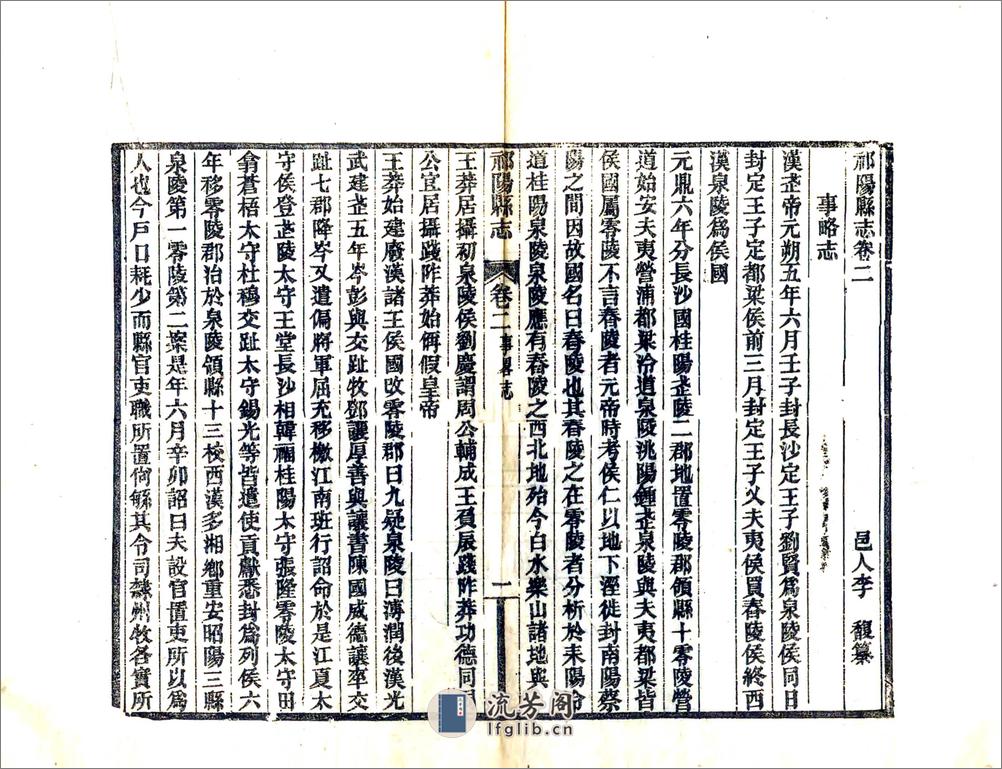 祁陽縣志卷二
邑人李　馥纂
事略志
漢武帝元朔五年六月壬子封長沙定王子劉賢爲泉陵侯同日
封定王子定都梁侯前三月封定王子义夫夷侯買舂陵侯終西
漢泉陵爲侯國
元鼎六年分長沙國桂陽武陵二郡地置零陵郡領縣十零陵營
道始安夫夷營浦都梁泠道泉陵洮陽鍾武泉陵與夫夷都梁皆
侯國屬零陵不言舂陵者元帝時考侯仁以地下溼徙封南陽蔡
陽之間因故國名曰舂陵也其舂陵之在零陵者分析於耒陽命
道桂陽泉陵泉陵應有舂陵之西北地殆今白水樂山諸地與
王莽居攝初泉陵侯劉慶謂周公輔成王負扆踐阼莽功德同周
祁陽縣志
卷二 事略志
一
公宜居攝踐阼莽始偁假皇帝
王莽始建廢漢諸王侯國改零陵郡曰九疑泉陵曰溥潤後漢光
武建武五年岑彭與交趾牧鄧讓厚善與讓書陳國威德讓率交
趾七郡降岑又遣偏將軍屈充移檄江南班行詔命於是江夏太
守侯登武陵太守王堂長沙相韓福桂陽太守張隆零陵太守田
翕蒼梧太守杜穆交趾太守錫光等皆遣使貢獻悉封爲列侯六
年移零陵郡治於泉陵領縣十三校西漢多湘鄉重安昭陽三縣
泉陵第一零陵第二案是年六月辛卯詔曰夫設官置吏所以爲
人也今戶口耗少而縣官吏職所置尙緐其令司隸州牧各實所
流芳阁
lfglib.cn